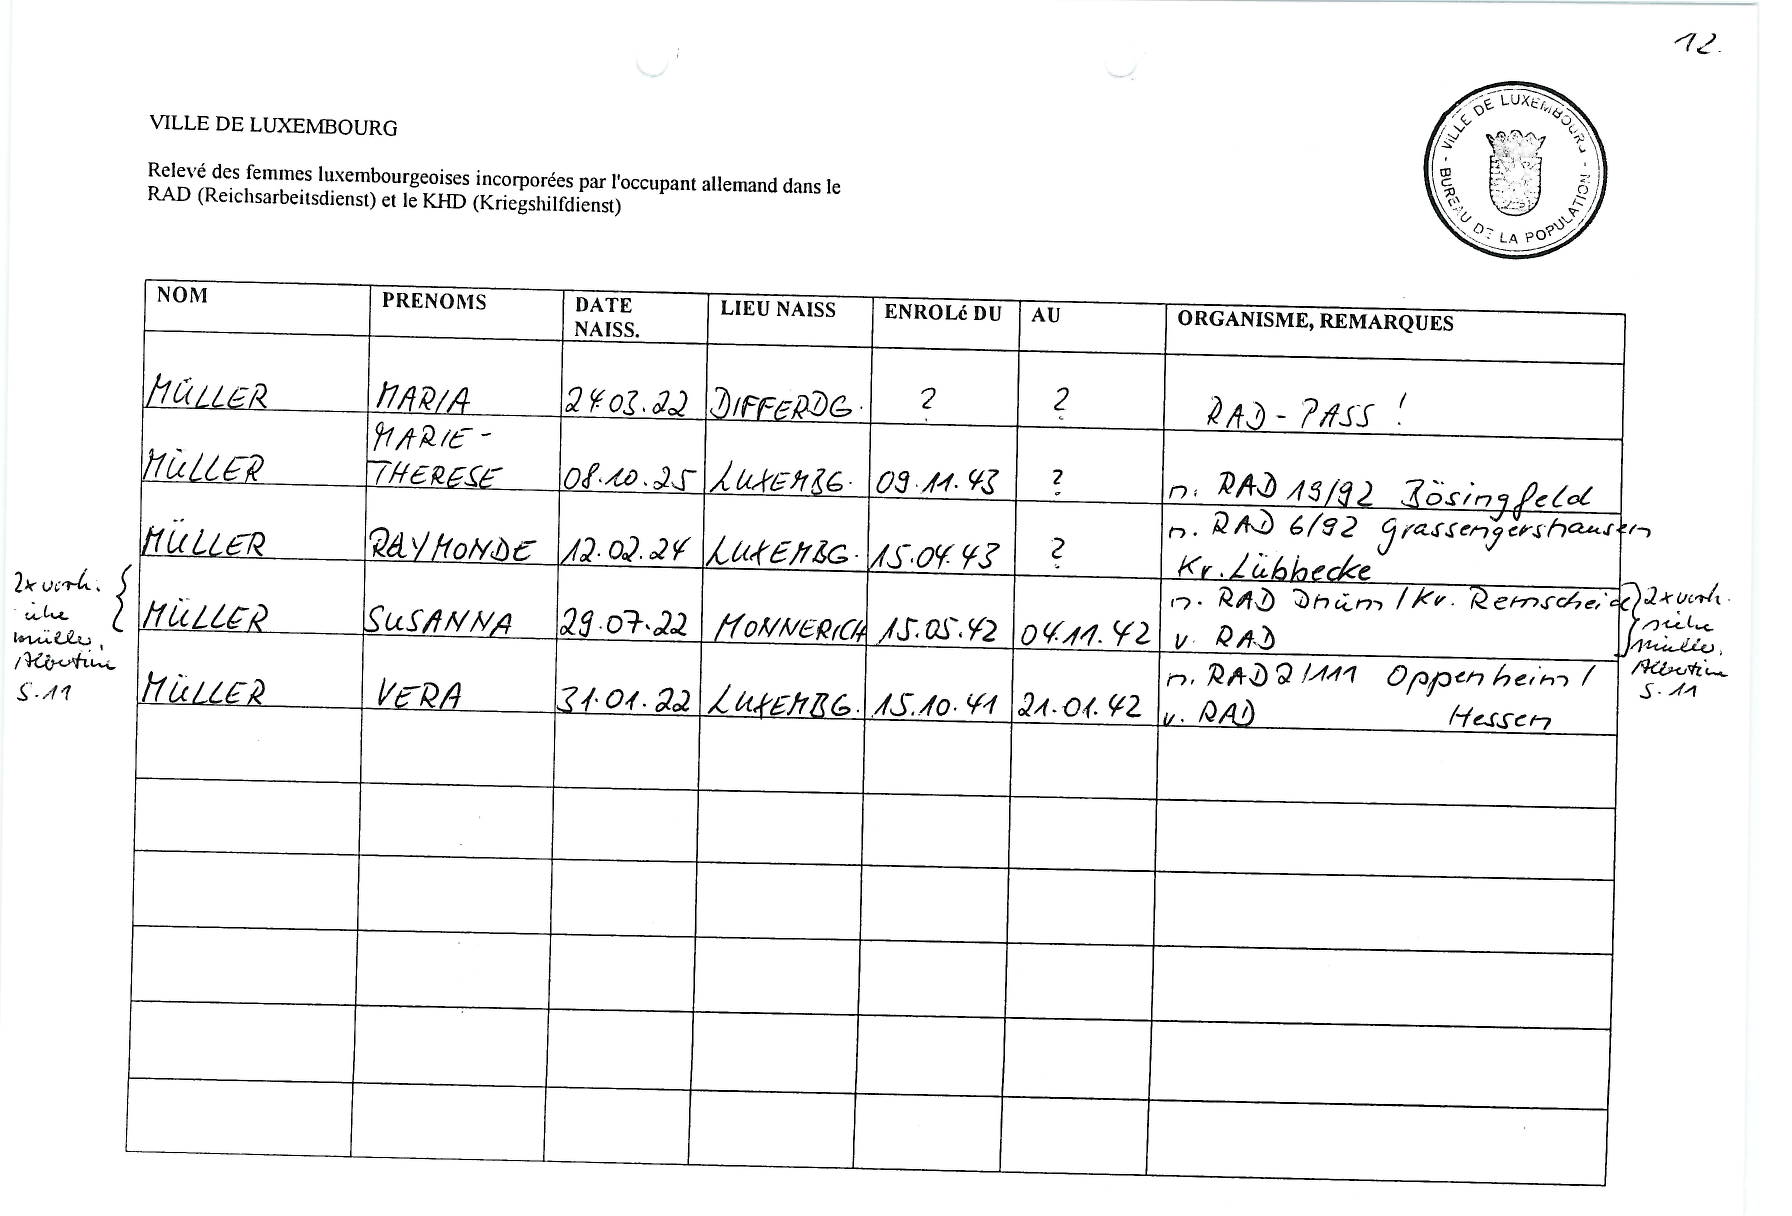 12.
VILLE DE LUXEMBOURG
Relevé des femmes luxembourgeoises incorporées par l'occupant allemand dans le
RAD (Reichsarbeitsdienst) et le KHD (Kriegshilfdienst)
- VILLE DE LUXEMBOURG - BUREAU DE LA POPULATION
NOM PRENOMS DATE NAISS. LIEU NAISS ENROLé DU AU ORGANISME, REMARQUES
MÜLLER MARIA 24.03.22 DIFFERDG. ? ? RAD-PASS !
MÜLLER MARIE-THERESE 08.10.25 LUXEMBG. 09.11.43 ? n. RAD 19/92 Bösingfeld
MÜLLER RAYMONDE 12.02.24 LUXEMBG. 15.04.43 ? n. RAD 6/92 Grassengershausen
Kr. Lübbecke
2x vorh.
siehe
Müller,
Albertine
S. 11
MÜLLER SUSANNA 29.07.22 MONNERICH 15.05.42 04.11.42 n. RAD / Kr. Remscheid
v. RAD
2x vorh.
siehe
Müller,
Albertine
S. 11
MÜLLER VERA 31.01.22 LUXEMBG. 15.10.41 21.01.42 n. RAD 2/111 Oppenheim/
v. RAD Hessen